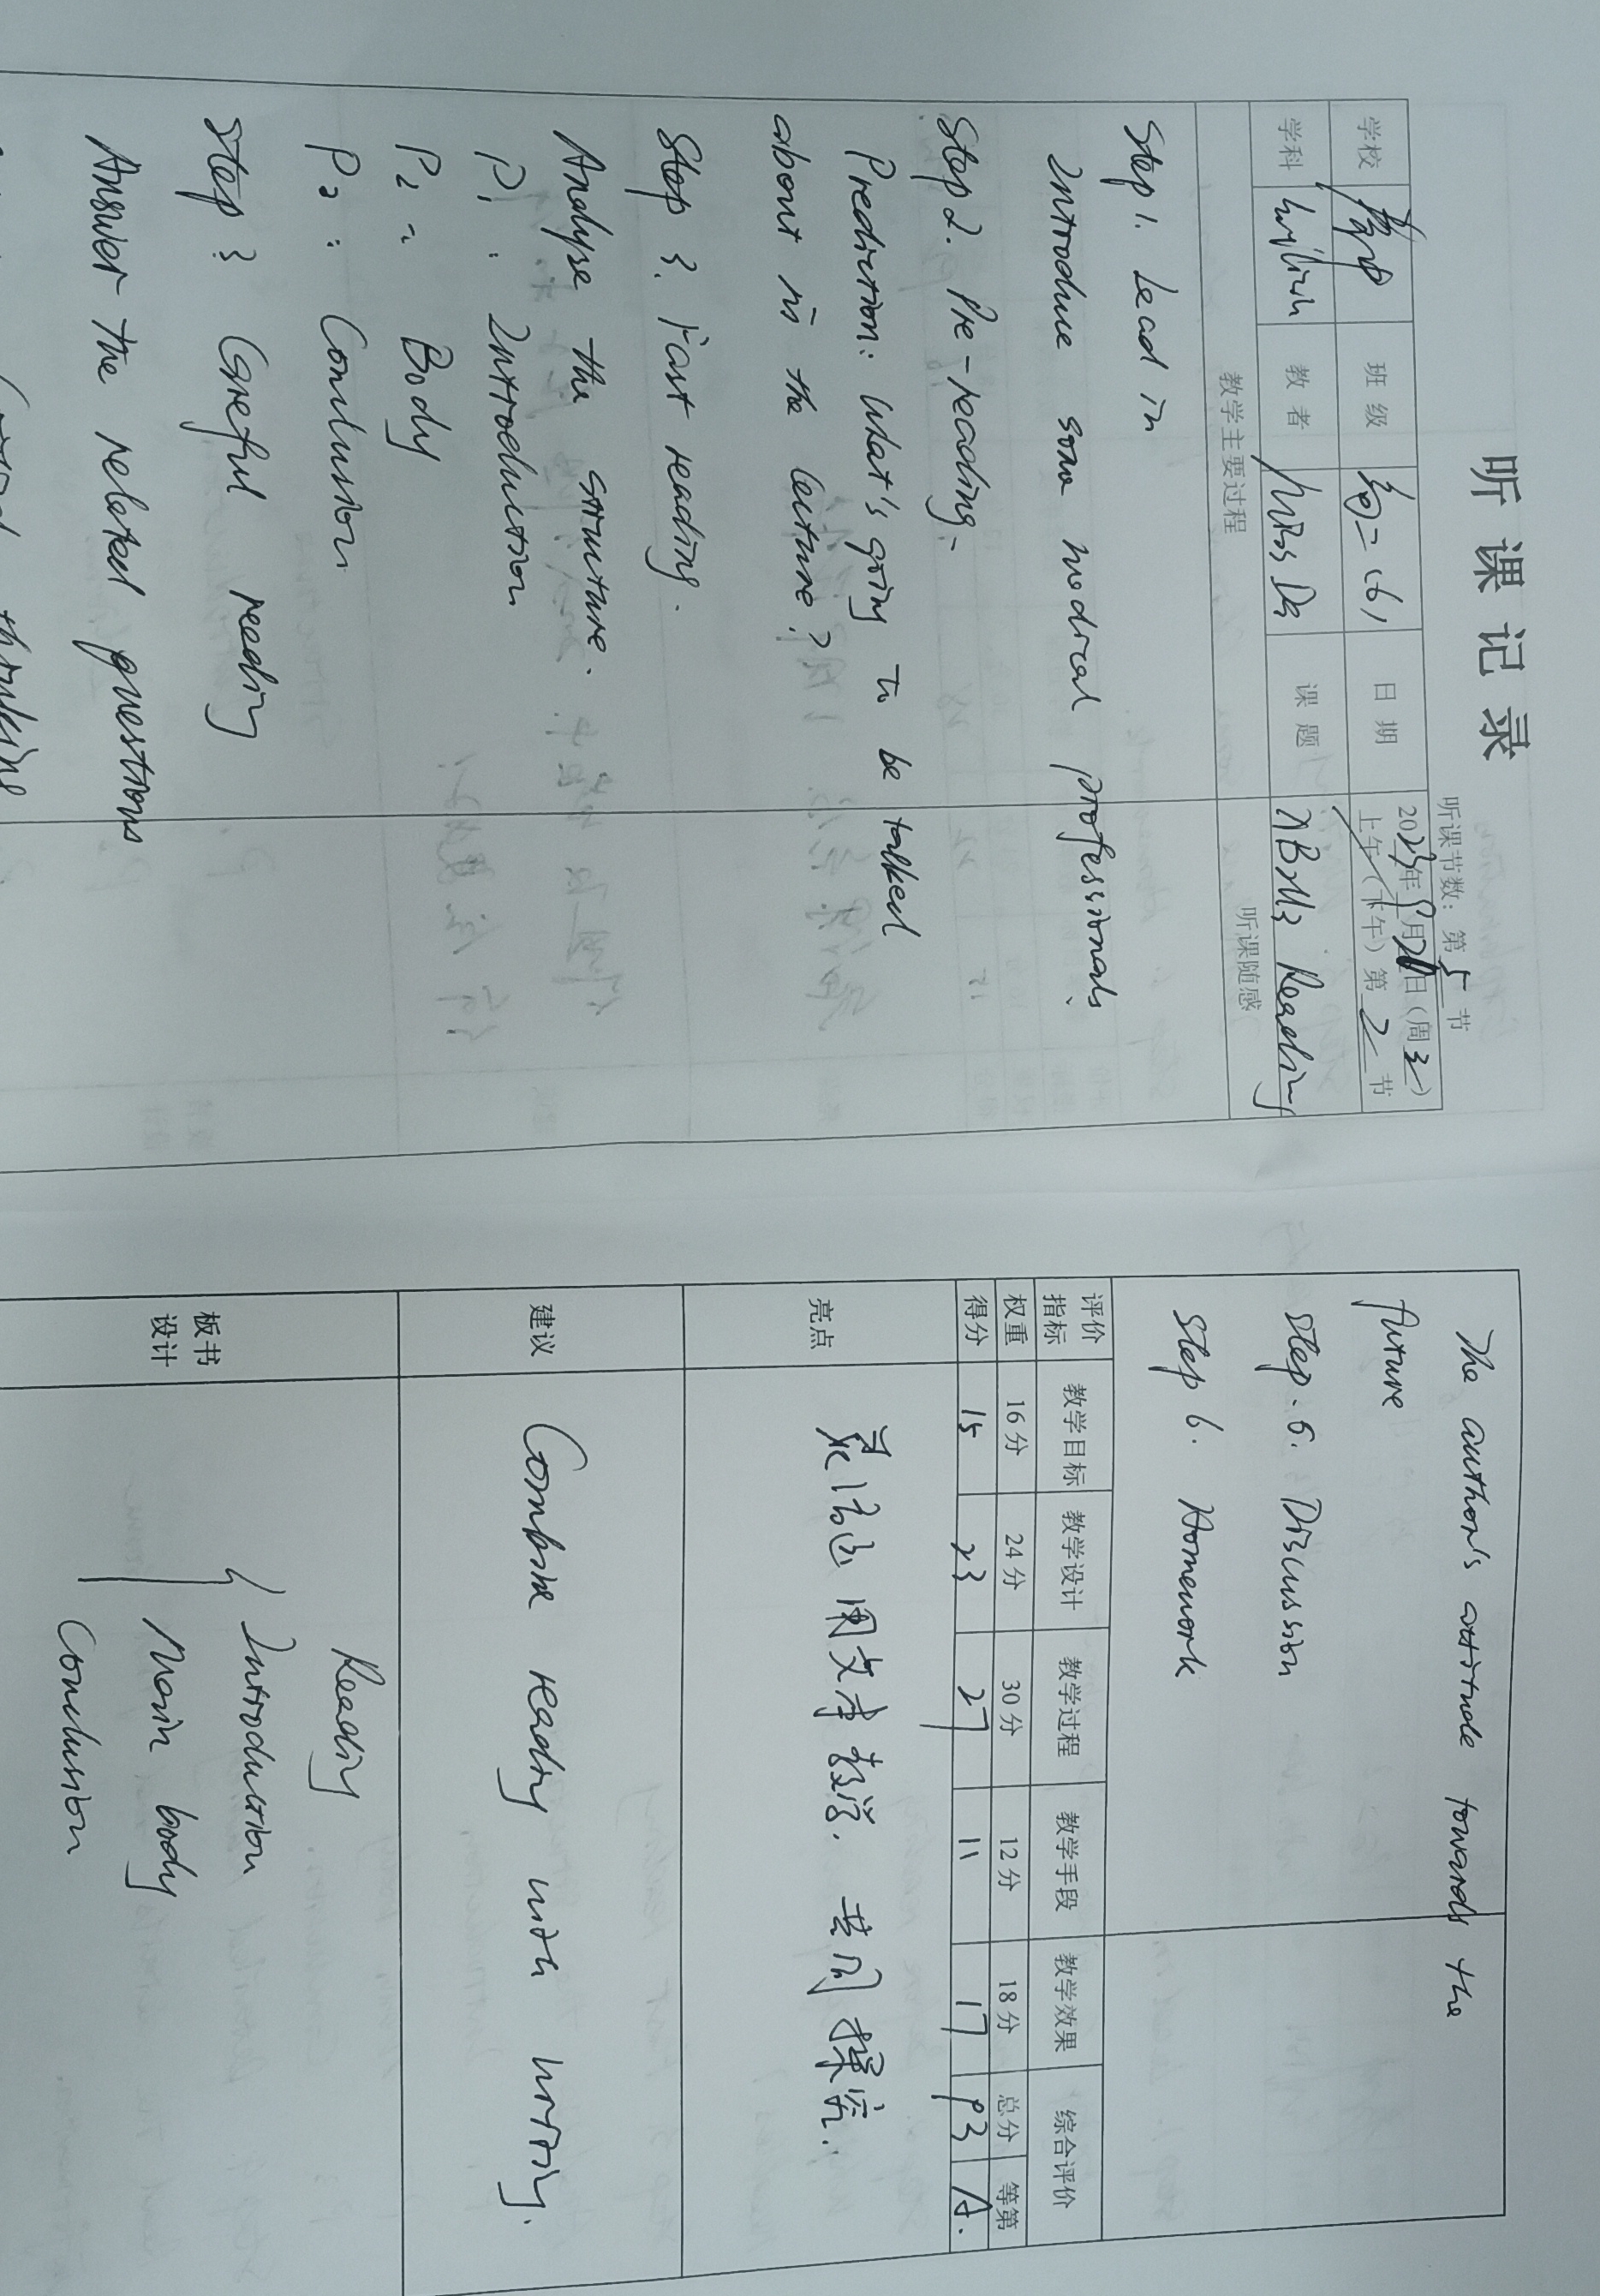 听课记录
听课节数：第5节
学校 班级 高二（6） 日期 2023年9月20日（周三）
上午（下午）第2节
学科 English 教者 Miss 课题 Reading
教学主要过程 听课随感
Step 1. Lead in
Introduce some medical professionals
Step 2. Pre-reading.
Prediction: What's going to be talked
about in the lecture?
Step 3. Fast reading.
Analyse the structure.
P1: Introduction
P2: Body
P3: Conclusion
Step 3 Careful reading
Answer the related questions
Critical thinking
The author's attitude towards the
future
Step. 5. Discussion
Step 6. Homework
评价指标 教学目标 教学设计 教学过程 教学手段 教学效果 综合评价
权重 16分 24分 30分 12分 18分 总分 等第
得分 15 23 27 11 17 93 A.
亮点 灵活运用文本教学. 共同探究.
建议 Combine reading with writing.
板书设计
Reading
Introduction
Main body
Conclusion